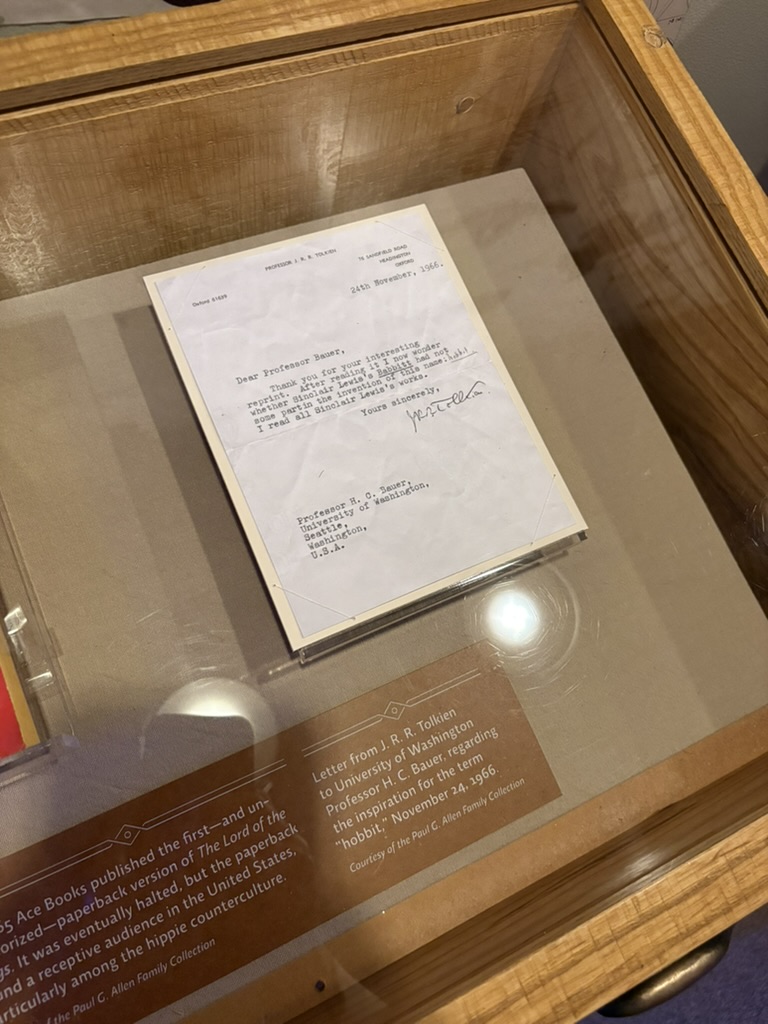 PROFESSOR J. R. R. TOLKIEN
76 SANDFIELD ROAD
HEADINGTON
OXFORD
Oxford 61639
24th November, 1966.
Dear Professor Bauer,
Thank you for your interesting
reprint. After reading it I now wonder
whether Sinclair Lewis's Babbitt had not
some part in the invention of this name: hobbit
I read all Sinclair Lewis's works.
Yours sincerely,
JRRTolkien
Professor H. C. Bauer,
University of Washington,
Seattle,
Washington,
U.S.A.
Letter from J. R. R. Tolkien
to University of Washington
Professor H. C. Bauer, regarding
the inspiration for the term
"hobbit." November 24, 1966.
Courtesy of the Paul G. Allen Family Collection
Ace Books published the first—and un-
orized—paperback version of The Lord of the
gs. It was eventually halted, but the paperback
und a receptive audience in the United States,
articularly among the hippie counterculture.
of the Paul G. Allen Family Collection